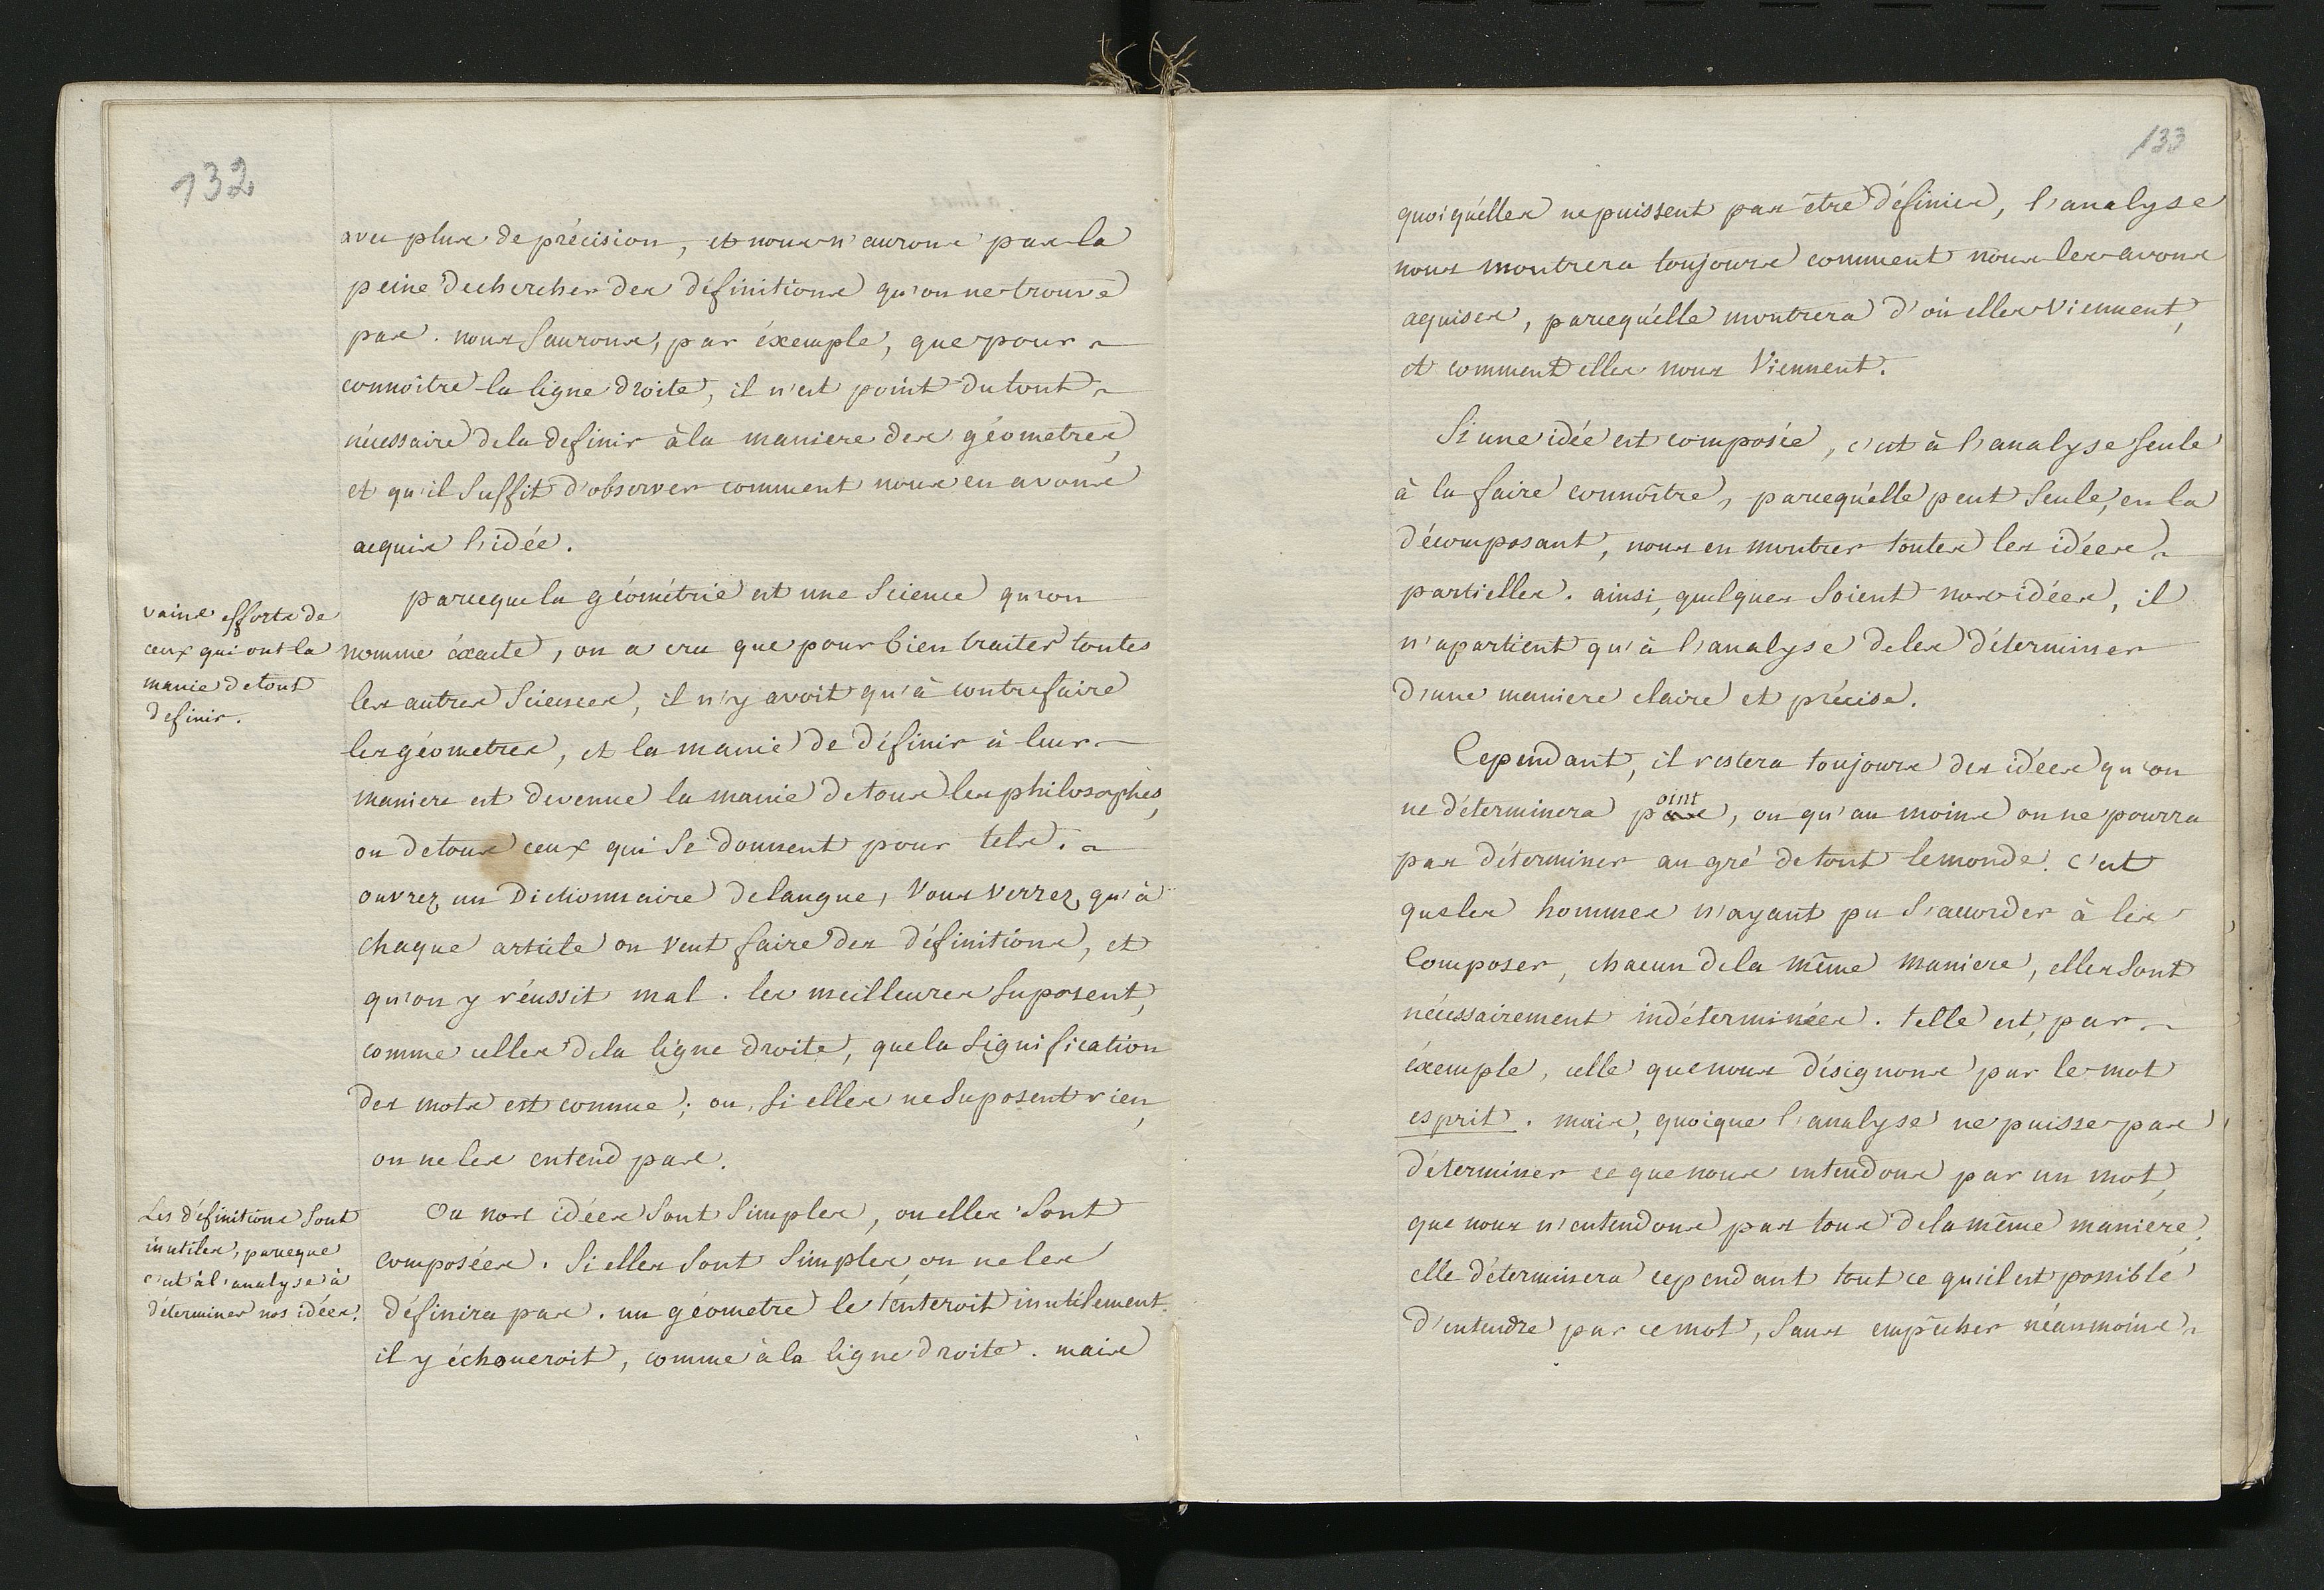 132
avec plus de précision, et nous n'aurons pas la
peine de chercher des définitions qu'on ne trouve
pas. nous saurons, par éxemple, que pour
connoître la ligne droite, il n'est point du tout
nécessaire de la definir à la maniere des géometres,
et qu'il suffit d'observer comment nous en avons
acquis l'idée.
vains efforts de
ceux qui ont la
manie de tout
definir.
parceque la géométrie est une science qu'on
nomme éxacte, on a cru que pour bien traiter toutes
les autres sciences, il n'y avoit qu'à contrefaire
les géometres, et la manie de définir à leur
maniere est devenue la manie de tous les philosophes,
ou de tous ceux qui se donnent pour tels.
ouvrez un Dictionnaire de langue, vous verrez qu'à
chaque article on veut faire des définitions, et
qu'on y réussit mal. les meilleures suposent,
comme celles de la ligne droite, que la signification
des mots est connue; ou, si elles ne suposent rien,
on ne les entend pas.
Les définitions sont
inutiles, parceque
c'est à l'analyse à
déterminer nos idées.
Ou nos idées sont simples, ou elles sont
composées. Si elles sont simples, on ne les
définira pas. un géometre le tenteroit inutilement.
il y échoueroit, comme à la ligne droite. mais
133
quoiqu'elles ne puissent pas être définies, l'analyse
nous montrera toujours comment nous les avons
aquises, parcequ'elle montrera d'où elles viennent,
et comment elles nous viennent.
Si une idée est composée, c'est à l'analyse seule
à la faire connoître, parcequ'elle peut seule, en la
décomposant, nous en montrer toutes les idées
partielles. ainsi, quelques soient nos idées, il
n'apartient qu'à l'analyse de les déterminer
d'une maniere claire et précise.
Cependant, il restera toujours des idées qu'on
ne déterminera point, ou qu'au moins on ne pourra
pas déterminer au gré de tout le monde. c'est
que les hommes n'ayant pu s'accorder à les
Composer, chacun de la même maniere, elles sont
nécessairement indéterminées. telle est, par
éxemple, celle que nous désignons par le mot
esprit. mais, quoique l'analyse ne puisse pas
déterminer ce que nous entendons par un mot,
que nous n'entendons pas tous de la même maniere,
elle déterminera cependant tout ce qu'il est possible
d'entendre par ce mot, sans empêcher néanmoins